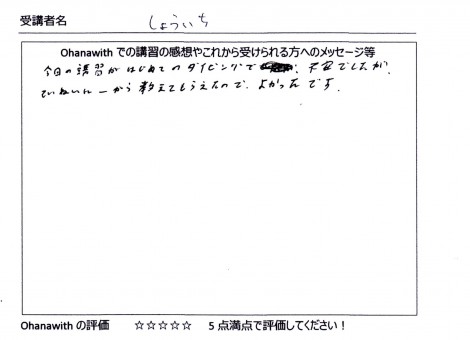 受講者名 しょういち
Ohanawith での講習の感想やこれから受けられる方へのメッセージ等
今日の講習がはじめてのダイビングで、不安でしたが、
ていねいに一から教えてもらえたので、よかったです。
Ohanawith の評価 ☆☆☆☆☆ 5 点満点で評価してください!